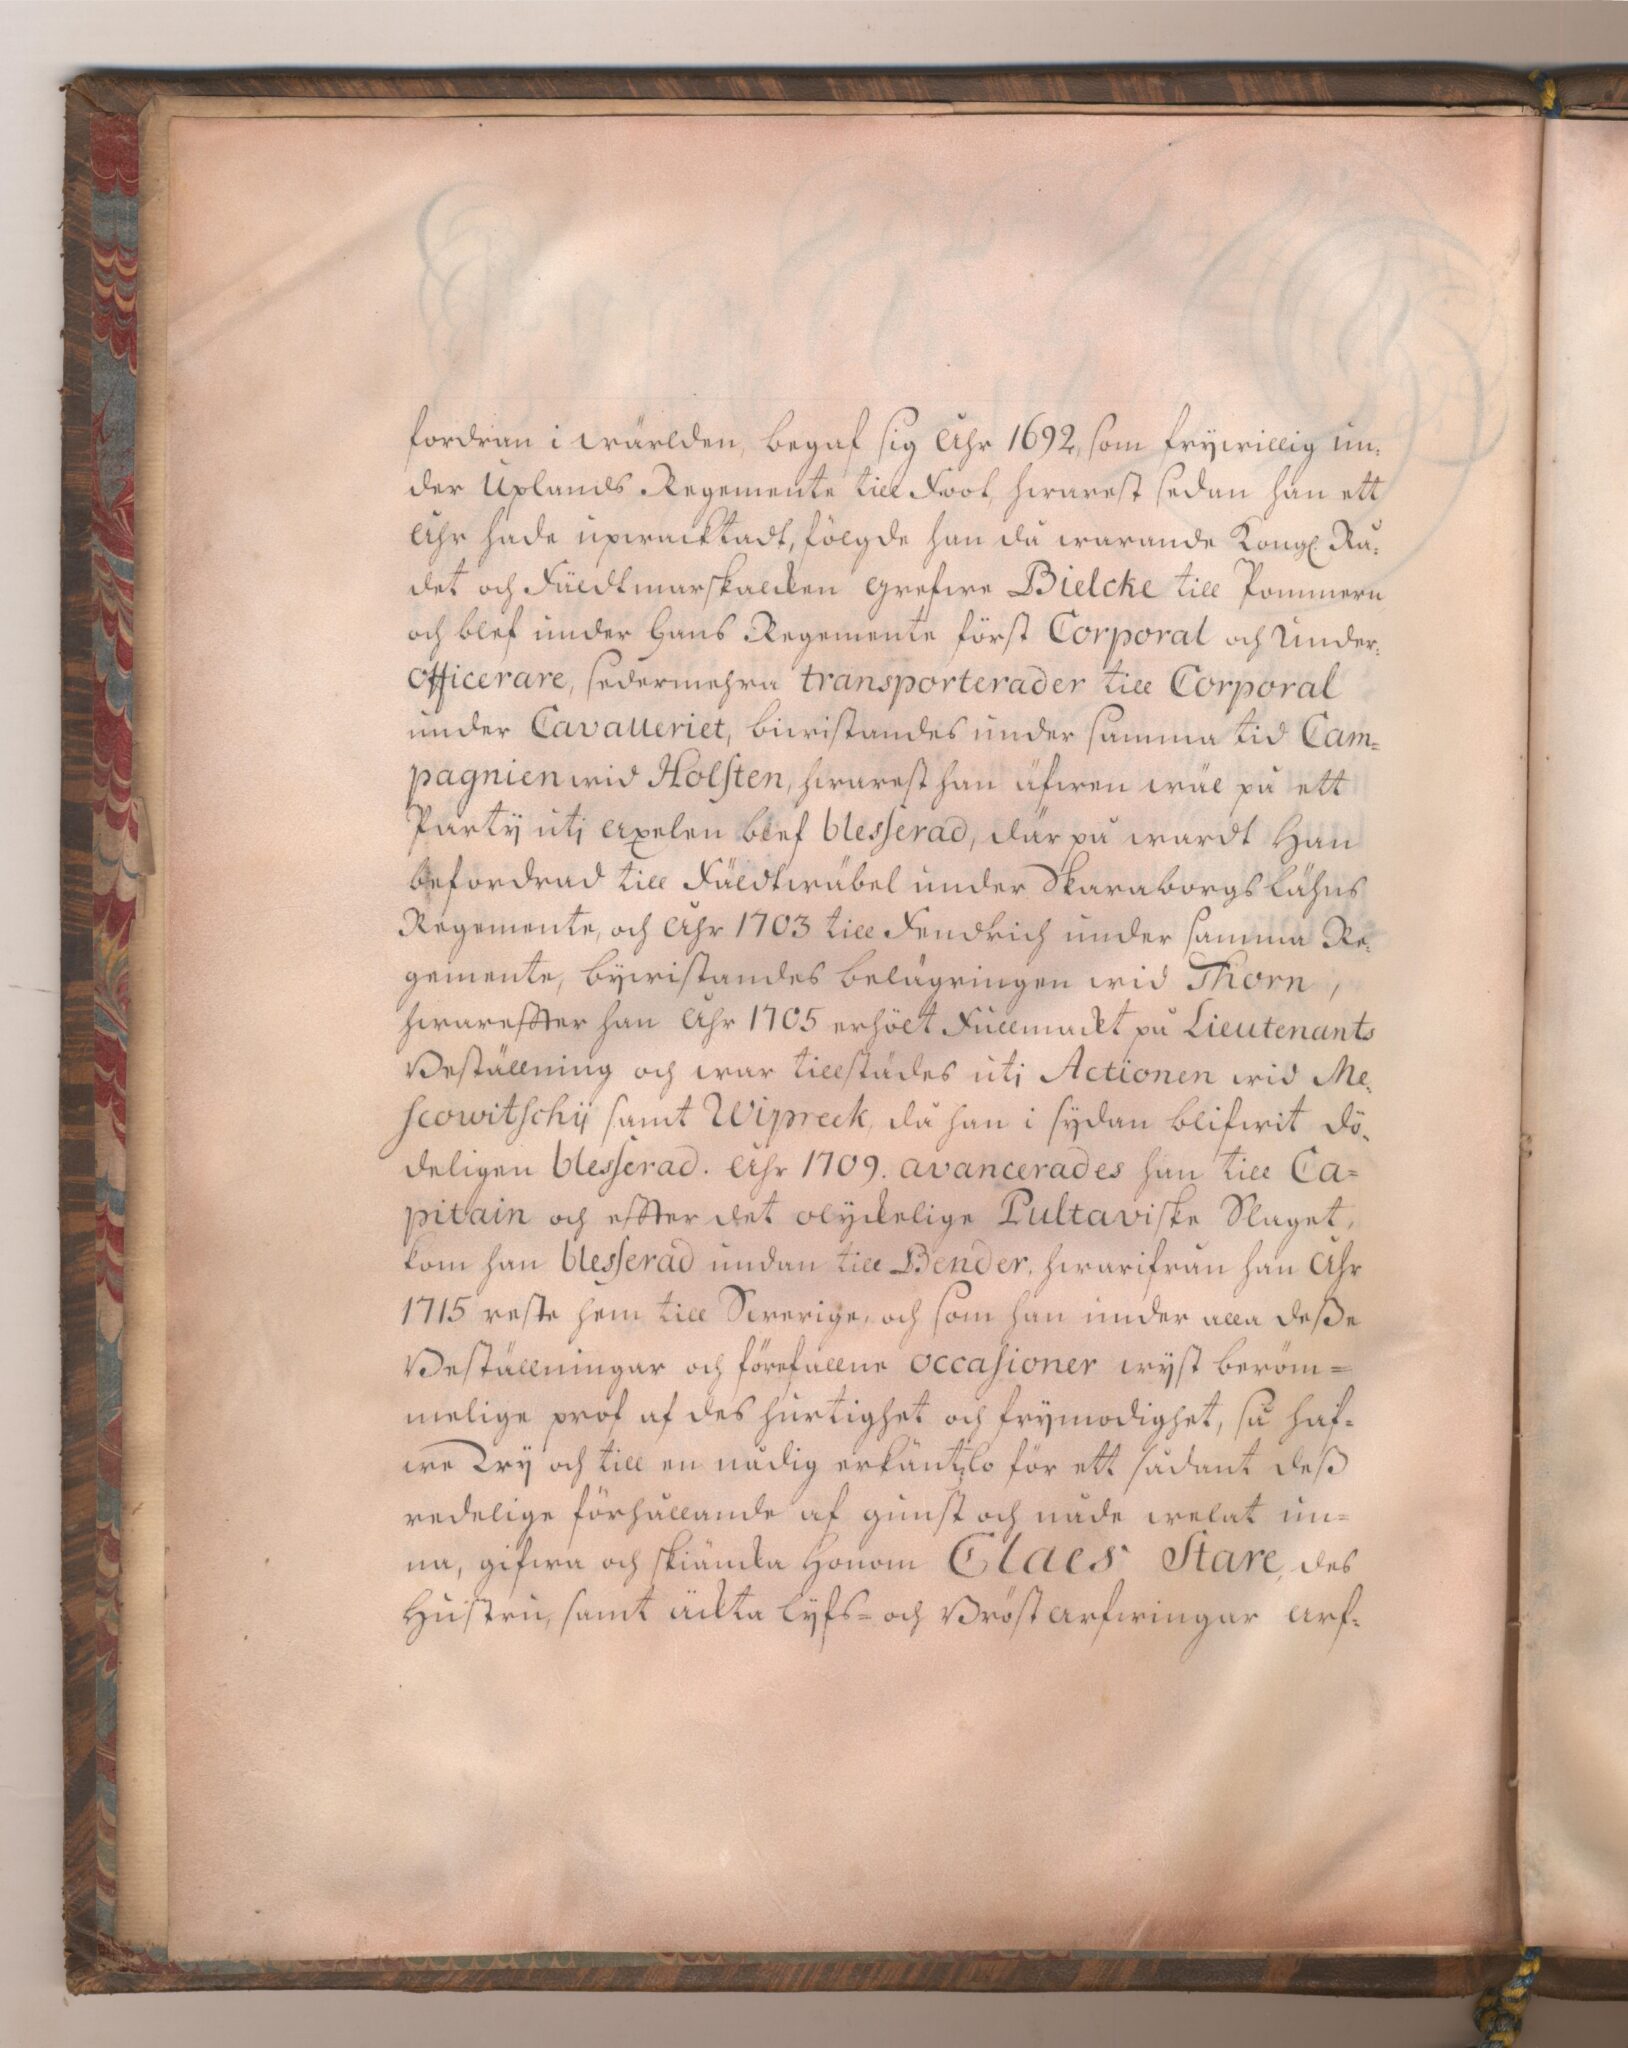 fordran i wärlden, begaf sig Åhr 1692, som frywillig un-
der Uplands Regemente till Foot, hwarest sedan han ett
Åhr hade upwacktadt, fölgde han då warande Kongl. Rå-
det och Fäldtmarskalcken Grefwe Bielcke till Pommern
och blef under Hans Regemente först Corporal och Under-
officerare, sedermehra transporterader till Corporal
under Cavalleriet, biwistandes under samma tid Cam-
pagnien wid Holsten, hwarest han äfwen wäl på ett
Party utj axelen blef blesserad, där på wardt Han
befordrad till Fäldtwäbel under Skaraborgs Lähns
Regemente, och Åhr 1703 till Fendrich under samma Re-
gemente, bywistandes belägringen wid Thorn,
hwareffter han Åhr 1705 erhölt Fullmackt på Lieutenants
Beställning och war tillstädes utj Actionen wid Me-
scowitschij samt Wipreck, då han i sydan blifwit dö-
deligen blesserad. Åhr 1709. avancerades han till Ca-
pitain och effter det olyckelige Pultaviske Slaget,
kom han blesserad undan till Bender, hwarifrån han Åhr
1715 reste hem till Swerige, och som han under alla deße
Beställningar och förefallne occasioner wyst beröm-
melige prof af des hurtighet och frymodighet, så haf-
we Wy och till en nådig erkäntzlo för ett sådant deß
redelige förhållande af gunst och nåde welat un-
na, gifwa och skiäncka Honom Claes Stare, des
Hustru, samt äckta Lyfs- och Bröst arfwingar arf-